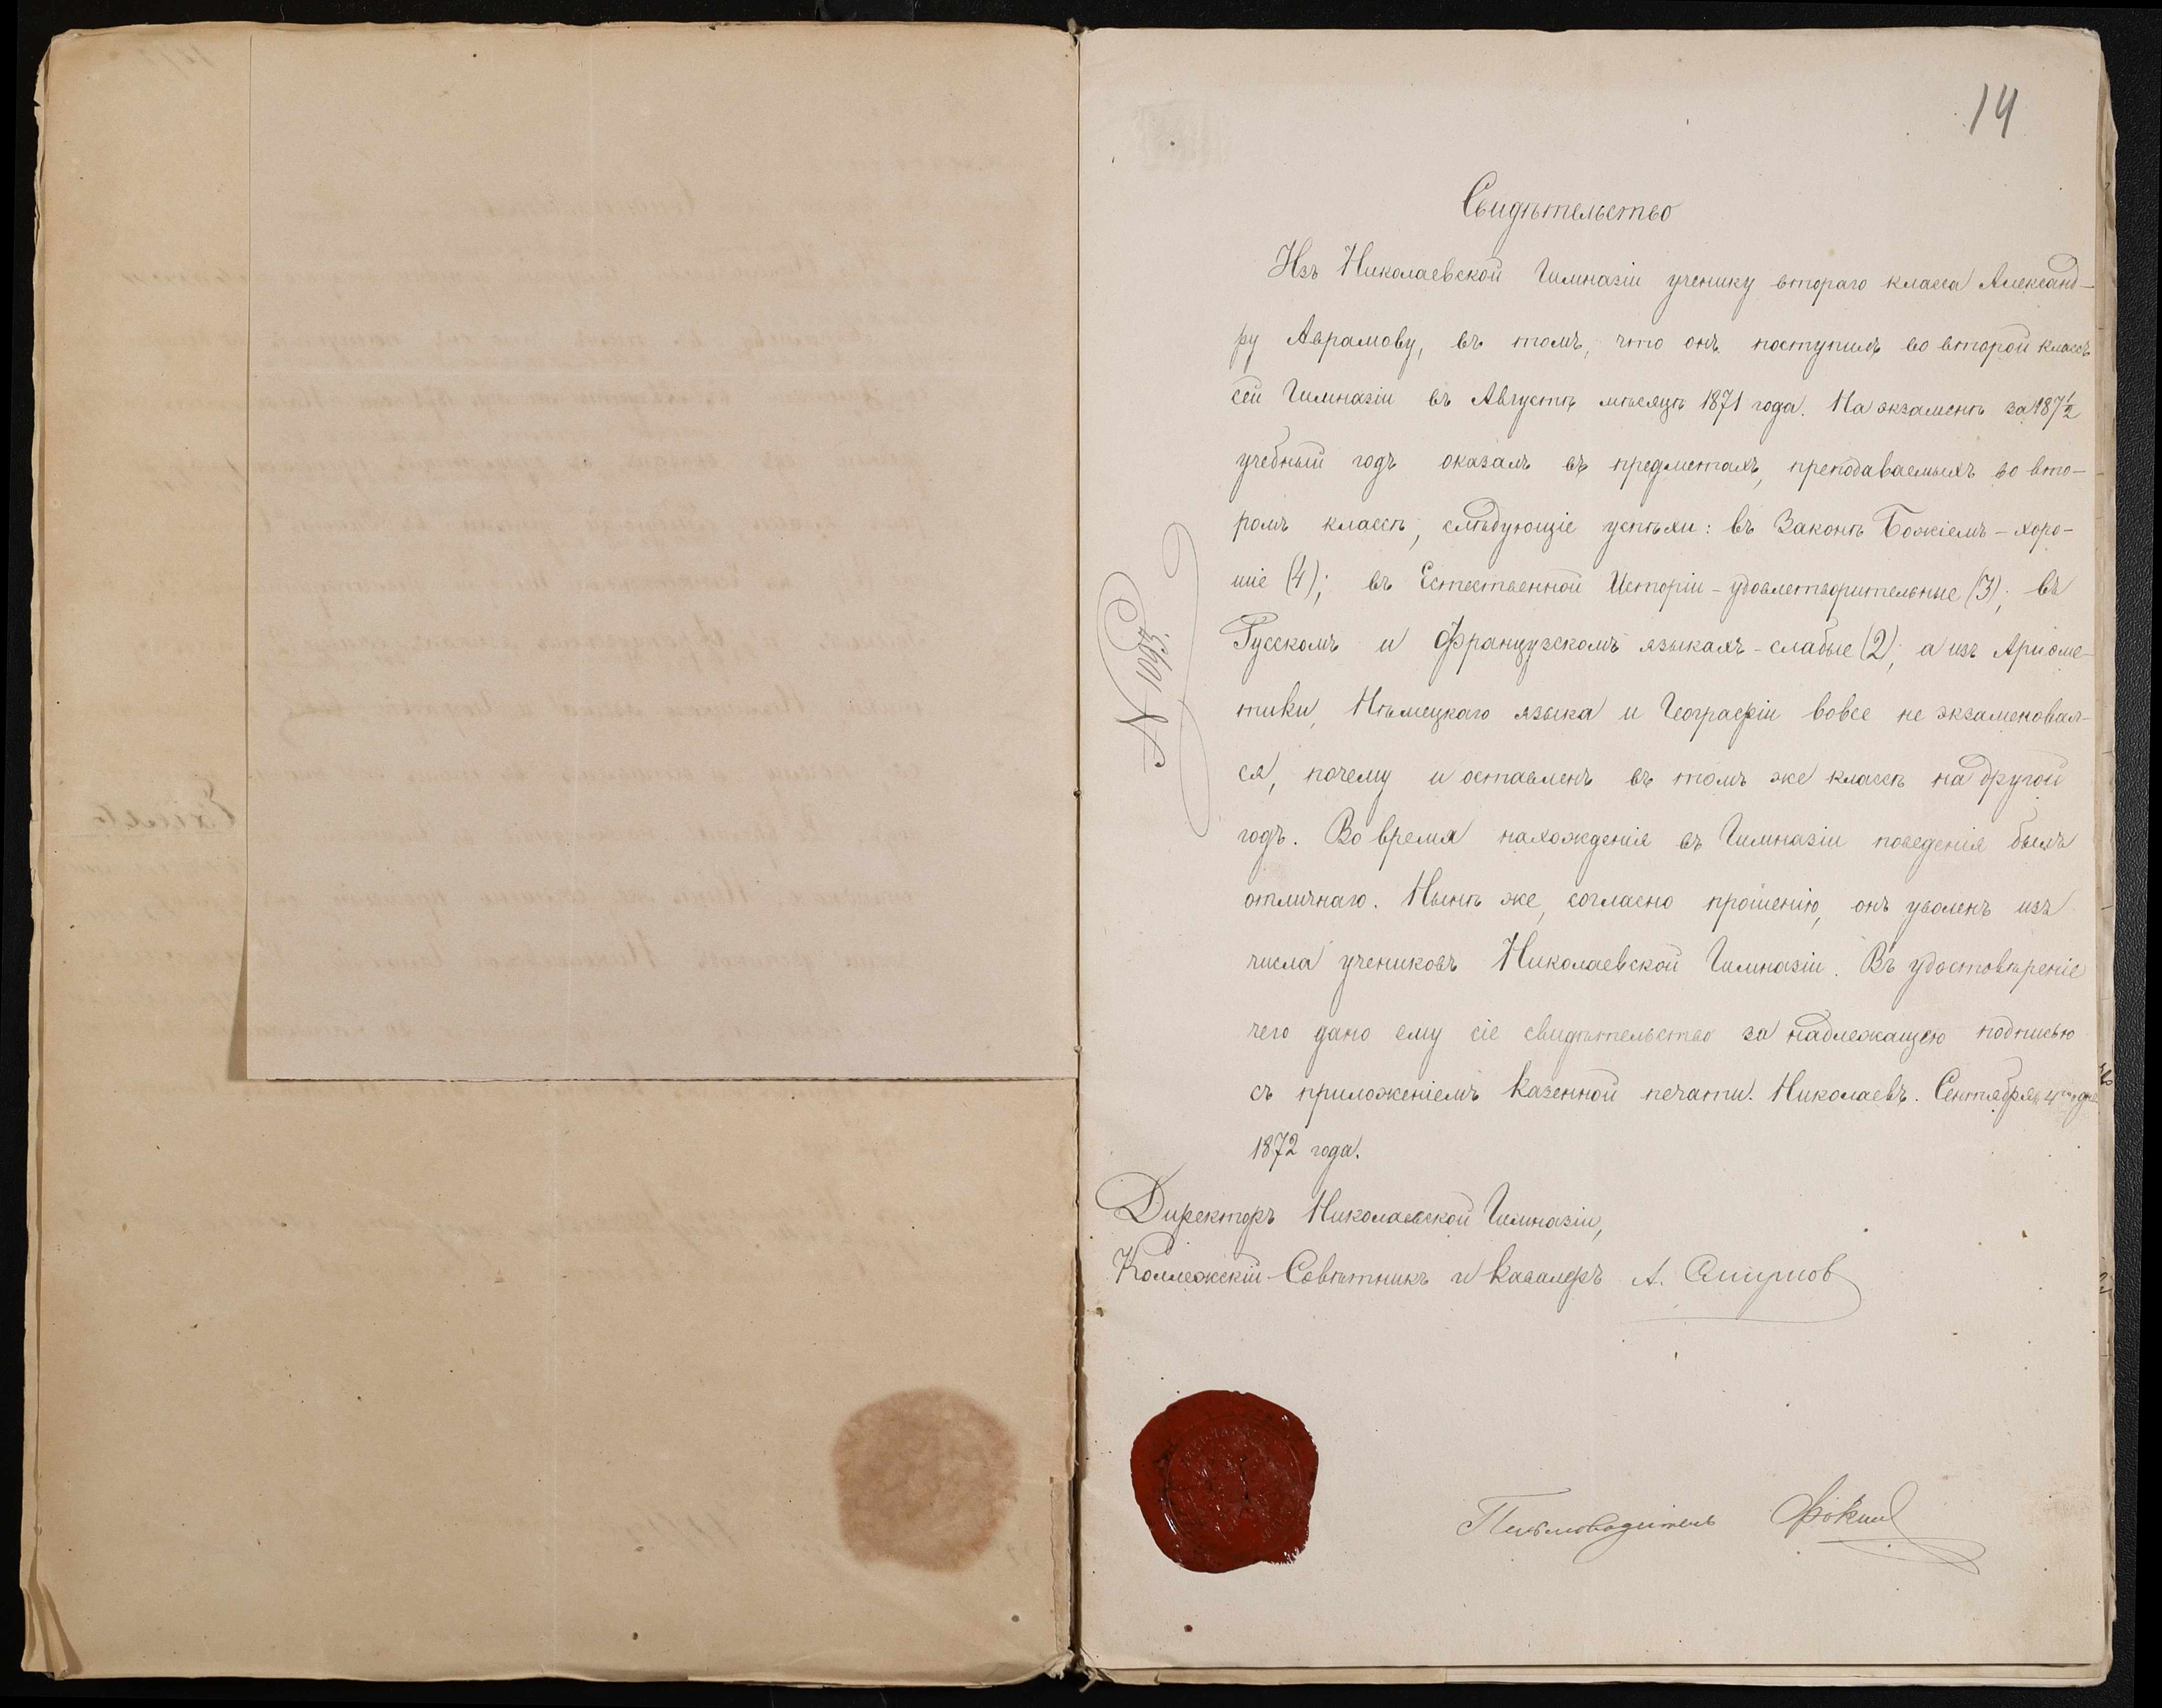 14
Свидѣтельство
Изъ Николаевской Гимназіи ученику втораго класса Александ-
ру Аврамову, въ томъ, что онъ поступилъ во второй классъ
сей Гимназіи въ Августѣ мѣсяцѣ 1871 года. На экзаменѣ за 187½
учебный годъ оказалъ въ предметахъ, преподаваемыхъ во вто-
ромъ классѣ, слѣдующіе успѣхи: въ Законѣ Божіемъ - хоро-
шіе (4); въ Естественной Исторіи - удовлетворительные (3); въ
Русскомъ и Французскомъ языкахъ - слабые (2); а изъ Ариѳме-
тики, Нѣмецкаго языка и Географіи вовсе не экзаменовал-
ся, почему и оставленъ въ томъ же классѣ на другой
годъ. Во время нахожденія въ Гимназіи поведенія былъ
отличнаго. Нынѣ же, согласно прошенію, онъ уволенъ изъ
числа учениковъ Николаевской Гимназіи. Въ удостовѣреніе
чего дано ему сіе свидѣтельство за надлежащею подписью
съ приложеніемъ казенной печати. Николаевъ. Сентября 4го дня
1872 года.
№ 1095.
Директоръ Николаевской Гимназіи,
Коллежскій Совѣтникъ и Кавалеръ А. Смирнов
Письмоводитель Фокин